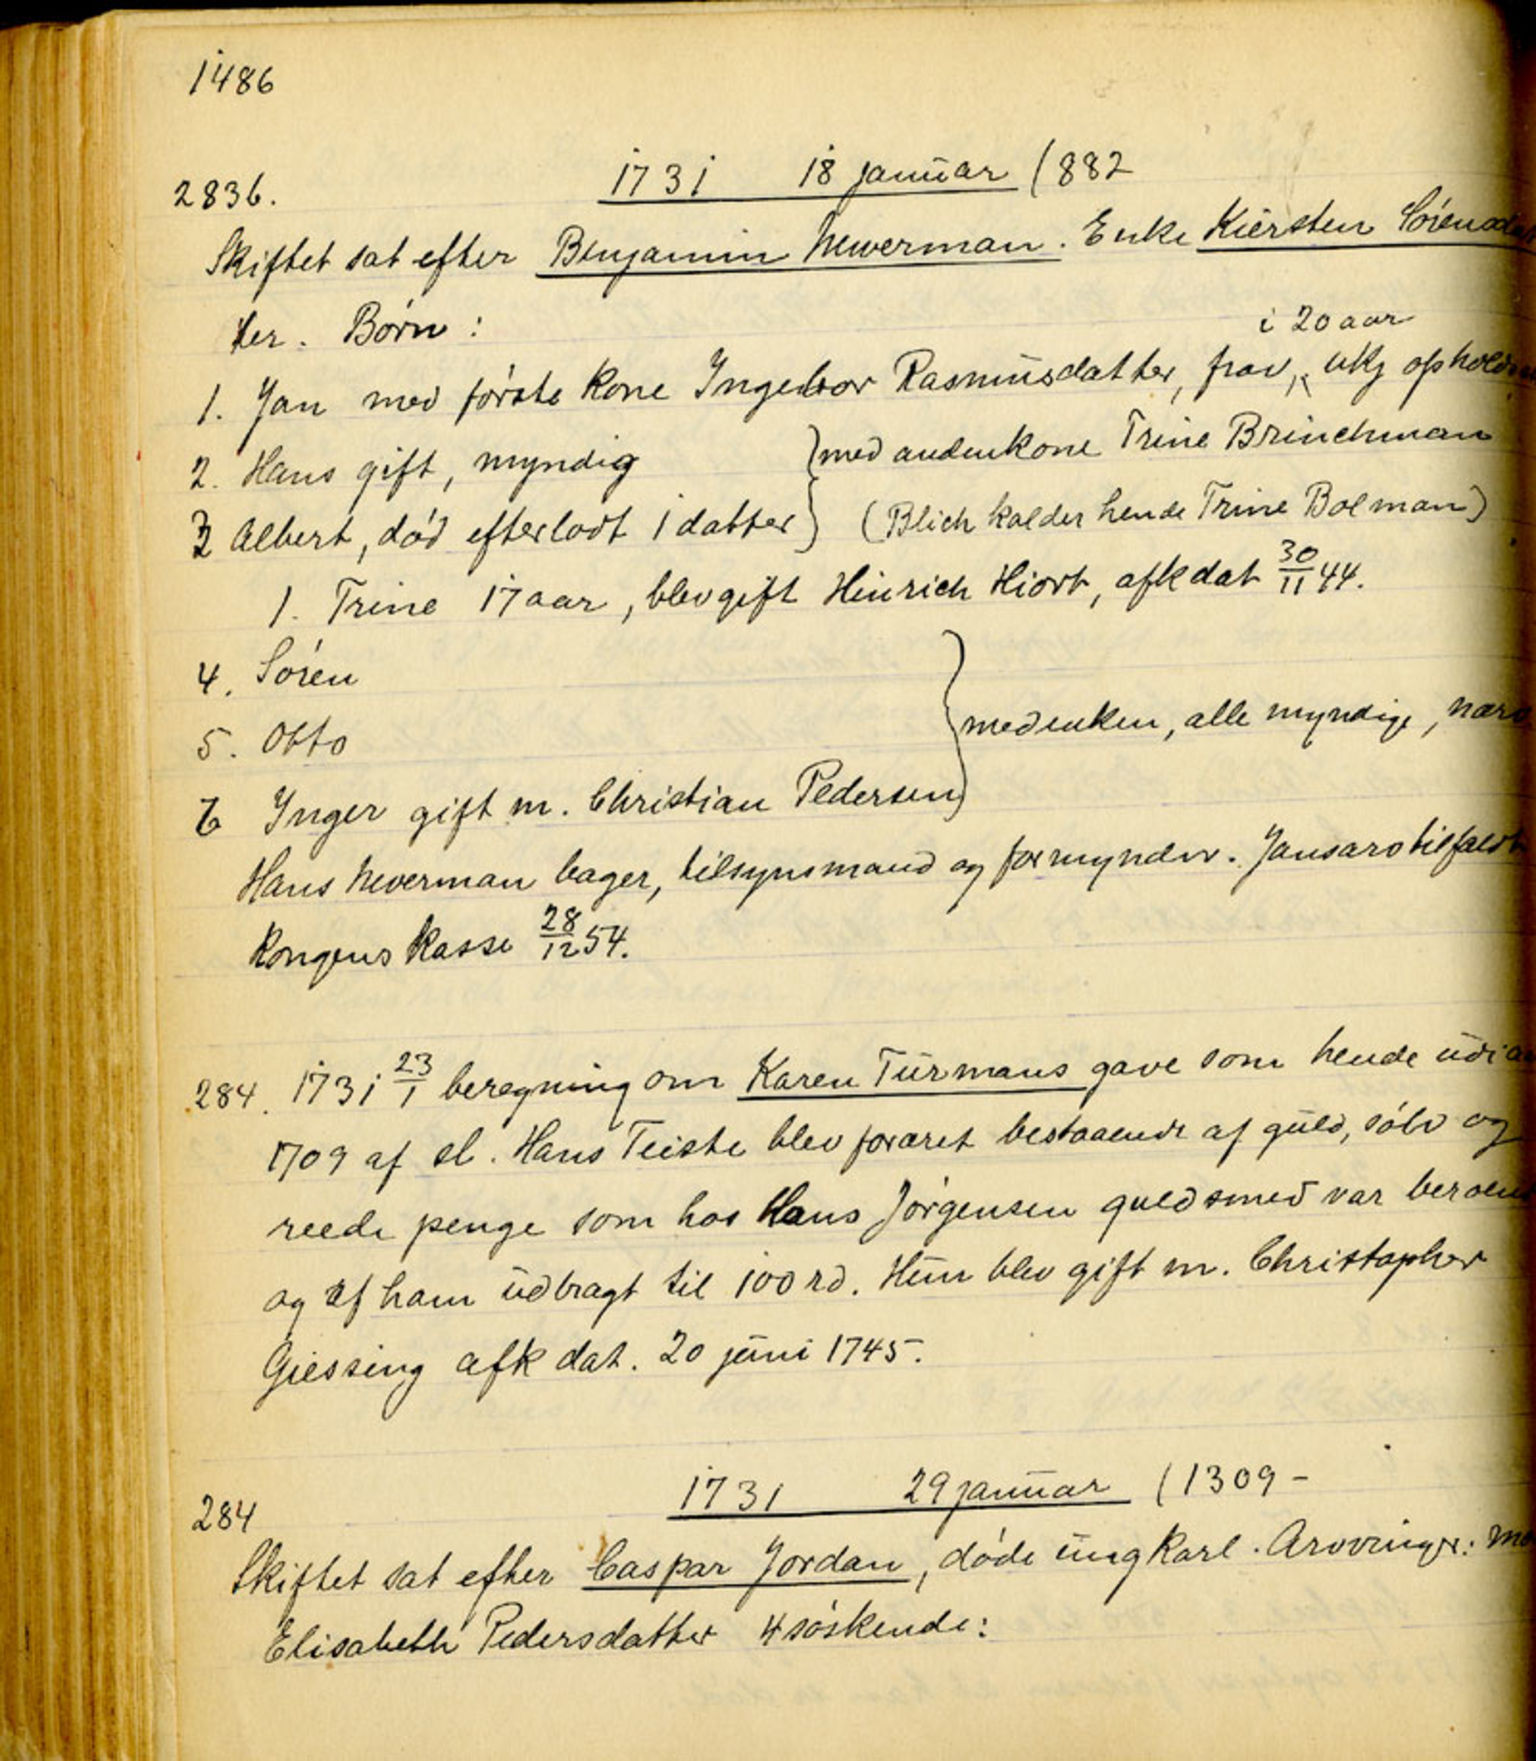 1486
2836. 1731 18 januar (882
Skiftet sat efter Benjamin Newerman. Enke Kiersten Sörensdat
ter. Börn:
i 20 aar
1. Jan med förste kone Ingebor Rasmusdatter, frav, ukj ophold
2. Hans gift, myndig } med anden kone Trine Brinchman
3 Albert, död efterlodt 1 datter } (Blich kalder hende Trine Bolman)
1. Trine 17 aar, blev gift Hinrich Hiort, afkdat 30/11 44.
4. Sören
5. Otto } med enken, alle myndige, nærv
6 Inger gift m. Christian Pedersen
Hans Neverman bager, tilsynsmand og formynder. Jans arv tilfaldt
Kongens Kasse 28/12 54.
284. 1731 23/1 beregning om Karen Turmans gave som hende udi
1709 af sl. Hans Teiste blev foræret bestaaende af guld, sölv og
reede penge som hos Hans Jörgensen guldsmed var beroen
og af ham udbragt til 100 rd. Hun blev gift m. Christopher
Giessing afk dat. 20 juni 1745.
284 1731 29 januar (1309-
Skiftet sat efter Caspar Jordan, döde ung karl. Arvvinger: mo
Elisabeth Pedersdatter 4 söskende: